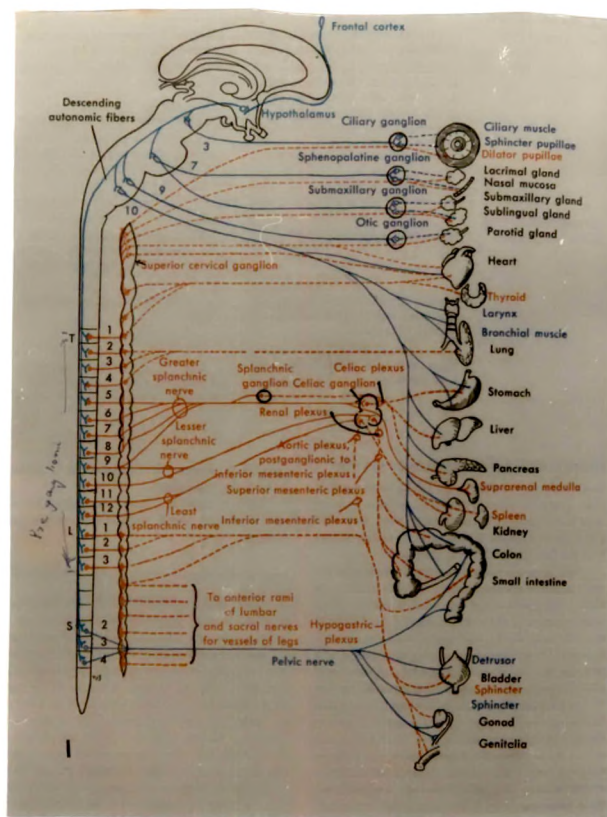 Frontal cortex
Descending
autonomic fibers
Hypothalamus
3
7
9
10
Ciliary ganglion
Sphenopalatine ganglion
Submaxillary ganglion
Otic ganglion
Ciliary muscle
Sphincter pupillae
Dilator pupillae
Lacrimal gland
Nasal mucosa
Submaxillary gland
Sublingual gland
Parotid gland
Heart
Thyroid
Larynx
Bronchial muscle
Lung
Stomach
Liver
Pancreas
Suprarenal medulla
Spleen
Kidney
Colon
Small intestine
Detrusor
Bladder
Sphincter
Sphincter
Gonad
Genitalia
Superior cervical ganglion
T
1
2
3
4
5
6
7
8
9
10
11
12
L
1
2
3
S
2
3
4
Greater
splanchnic
nerve
Splanchnic
ganglion
Celiac ganglion
Celiac plexus
Renal plexus
Lesser
splanchnic
nerve
Aortic plexus,
postganglionic to
inferior mesenteric plexus
Superior mesenteric plexus
Least
splanchnic nerve
Inferior mesenteric plexus
To anterior rami
of lumbar
and sacral nerves
for vessels of legs
Hypogastric
plexus
Pelvic nerve